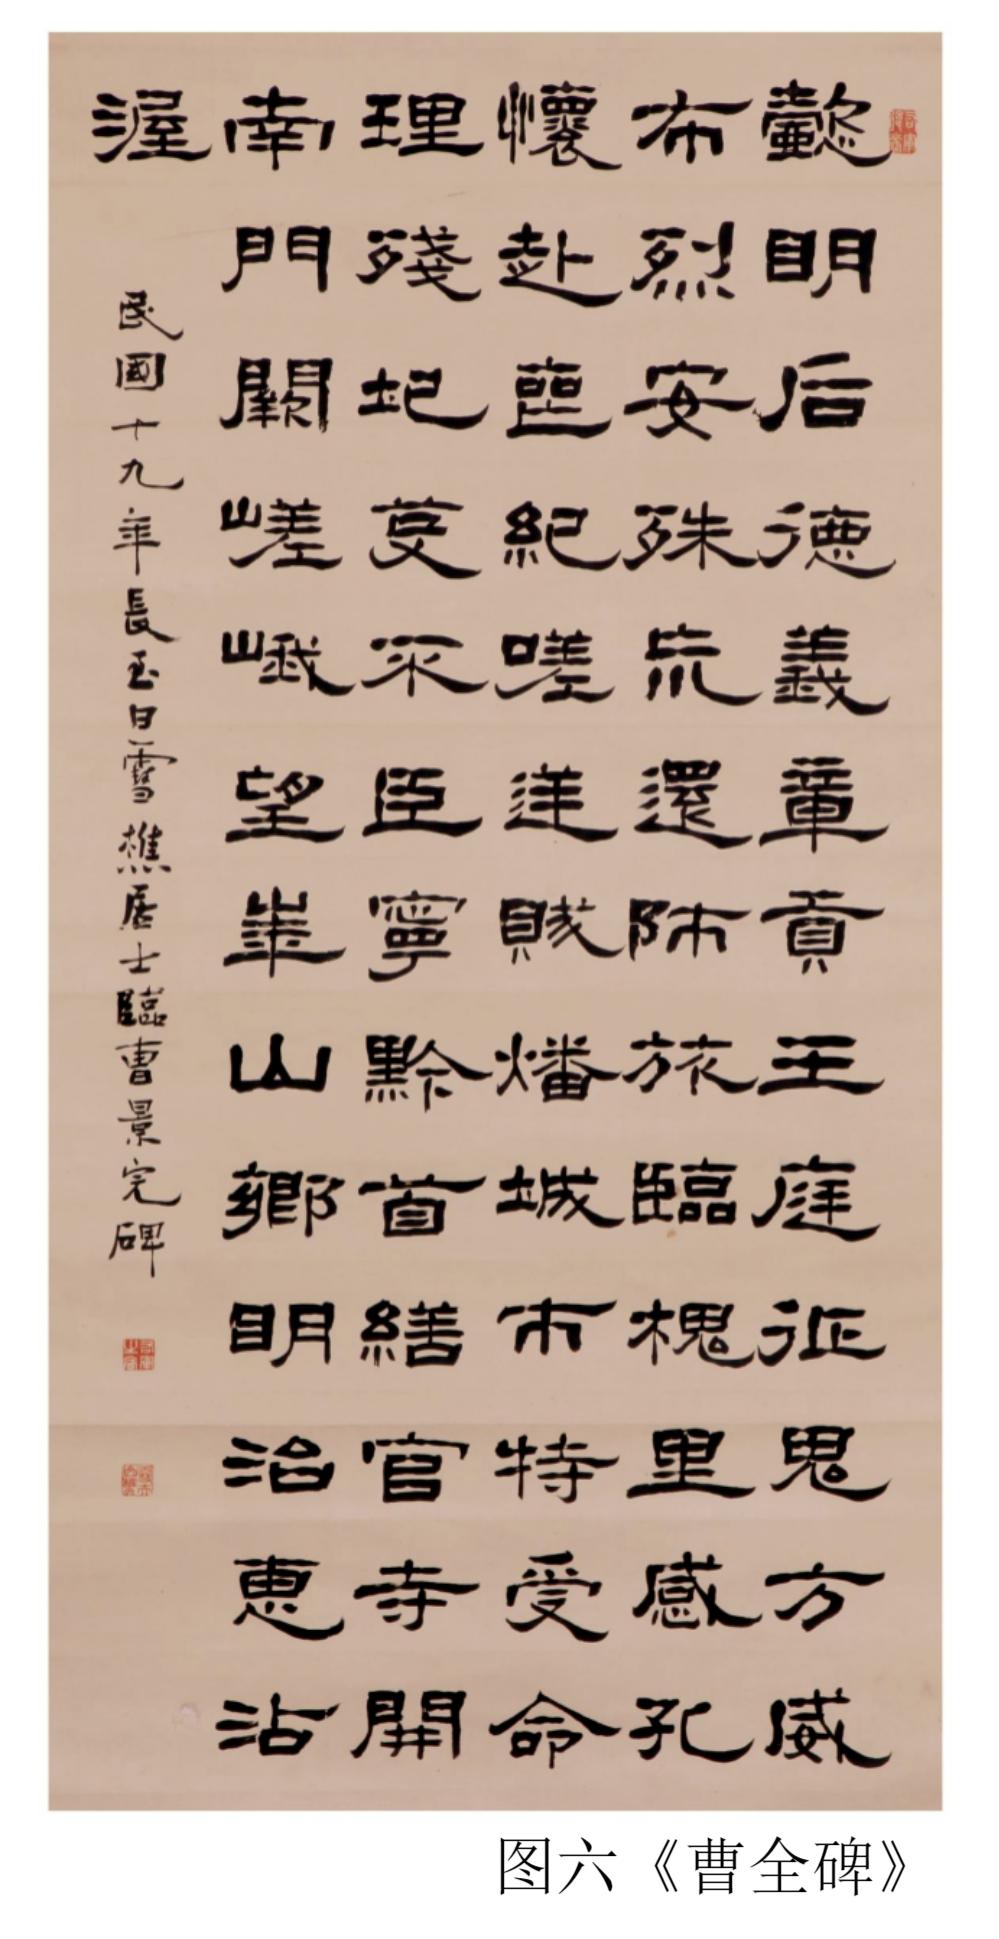 懿明后德義章貢王庭征鬼方威
布烈安殊巟還師旅臨槐里感孔
懷赴喪紀嗟逆賊燔城市特受命
理殘圮芟不臣寧黔首繕官寺開
南門闕嵯峨望華山鄉明治惠沾
渥
民國十九年長至日雪樵居士臨曹景完碑
图六《曹全碑》